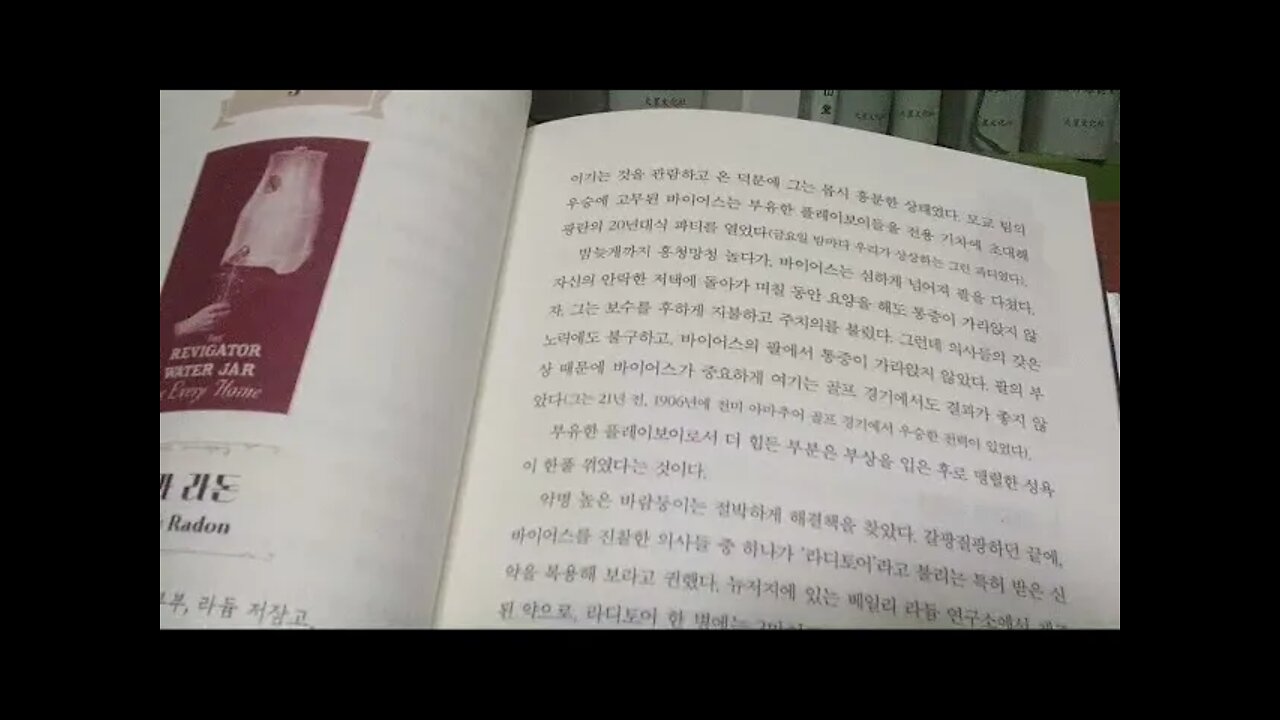 THE
REVIGATOR
WATER JAR
Every Home
라돈
Radon
라듐 저장고,
이기는 것을 관람하고 온 덕분에 그는 몹시 흥분한 상태였다. 모교 팀의
우승에 고무된 바이어스는 부유한 플레이보이들을 전용 기차에 초대해
광란의 20년대식 파티를 열었다(금요일 밤마다 우리가 상상하는 그런 파티였다).
밤늦게까지 흥청망청 놀다가, 바이어스는 심하게 넘어져 팔을 다쳤다.
자신의 안락한 저택에 돌아가 며칠 동안 요양을 해도 통증이 가라앉지 않
자, 그는 보수를 후하게 지불하고 주치의를 불렀다. 그런데 의사들의 갖은
노력에도 불구하고, 바이어스의 팔에서 통증이 가라앉지 않았다. 팔의 부
상 때문에 바이어스가 중요하게 여기는 골프 경기에서도 결과가 좋지 않
았다(그는 21년 전, 1906년에 전미 아마추어 골프 경기에서 우승한 전력이 있었다).
부유한 플레이보이로서 더 힘든 부분은 부상을 입은 후로 맹렬한 성욕
이 한풀 꺾였다는 것이다.
악명 높은 바람둥이는 절박하게 해결책을 찾았다. 갈팡질팡하던 끝에,
바이어스를 진찰한 의사들 중 하나가 '라디토어'라고 불리는 특허 받은 신
약을 복용해 보라고 권했다. 뉴저지에 있는 베일리 라듐 연구소에서
된 약으로, 라디토어 한 병에는